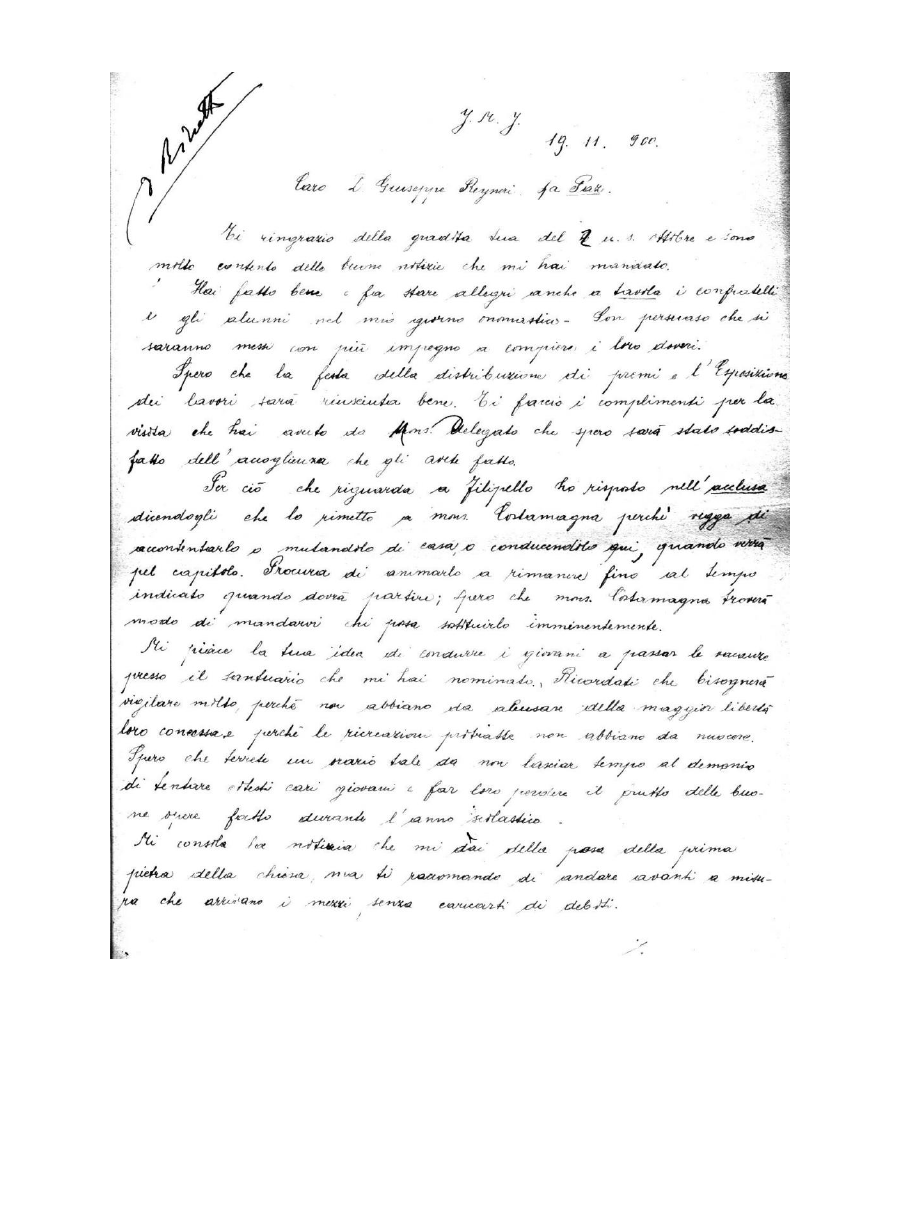 J. M. J.
19. 11. 900.
Caro D Giuseppe Reyneri. La Paz.
Ti ringrazio della gradita tua del 7 u. s. ottobre e sono
molto contento delle buone notizie che mi hai mandato.
Hai fatto bene a fa stare allegri anche a tavola i confratelli
e gli alunni nel mio giorno onomastico - Son persuaso che si
saranno messi con più impegno a compiere i loro doveri.
Spero che la festa della distribuzione di premi e l'Esposizione
dei lavori sarà riusciuta bene. Ti faccio i complimenti per la
visita che hai avuto da Mons. Delegato che spero sarà stato soddis-
fatto dell'accoglienza che gli avete fatto.
Per ciò che riguarda a Filipello ho risposto nell'acclusa
dicendogli che lo rimetto a mons. Costamagna perchè vegga di
accontentarlo o mutandolo di casa, o conducendolo qui, quando verrà
pel capitolo. Procura di animarlo a rimanere fino al tempo
indicato quando dovrà partire; spero che mons. Costamagna troverà
modo di mandarvi chi possa sostituirlo imminentemente.
Mi piace la tua idea di condurre i giovani a passar le vacanze
presso il santuario che mi hai nominato. Ricordati che bisognerà
vigilare molto, perchè non abbiano da abusare della maggior libertà
loro concessa, e perchè le ricreazioni protratte non abbiano da nuocere.
Spero che terrete un orario tale da non lasciar tempo al demonio
di tentare cotesti cari giovani e far loro perdere il frutto delle buo-
ne opere fatto durante l'anno scolastico.
Mi consola la notizia che mi dai della posa della prima
pietra della chiesa, ma ti raccomando di andare avanti a misu-
ra che arrivano i mezzi, senza caricarti di debiti.
./.